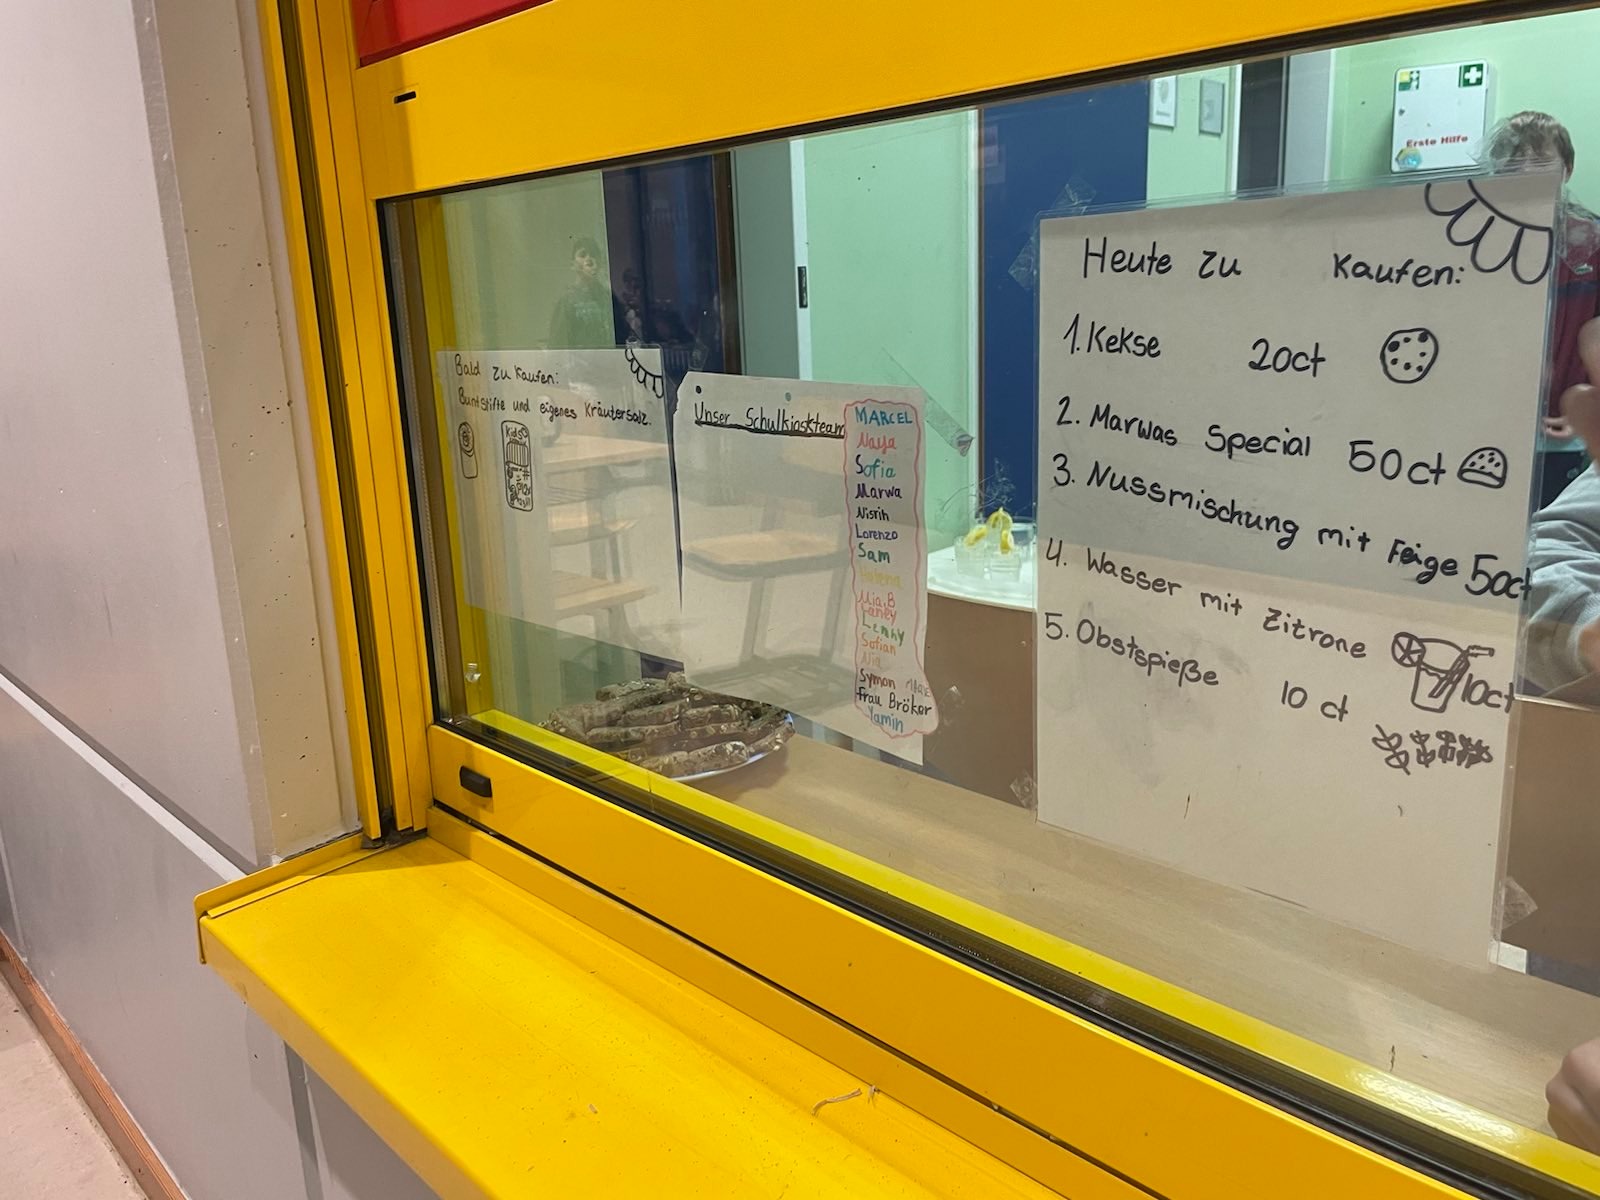 Erste Hilfe
Bald zu kaufen:
Buntstifte und eigenes Kräutersalz.
Kids
Unser Schulkioskteam
MARCEL
Naya
Sofia
Marwa
Nisrin
Lorenzo
Sam
Helena
Mia.B
Laney
Lenny
Sofian
Nia
Symon
Frau Bröker
Yamin
Heute zu kaufen:
1. Kekse 20ct
2. Marwas Special 50ct
3. Nussmischung mit Feige 50ct
4. Wasser mit Zitrone 10ct
5. Obstspieße 10 ct